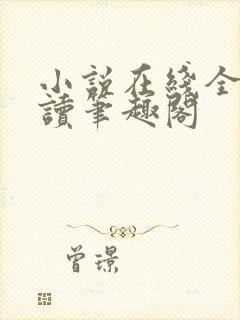 小說在綫全
讀筆趣閣
曾璟